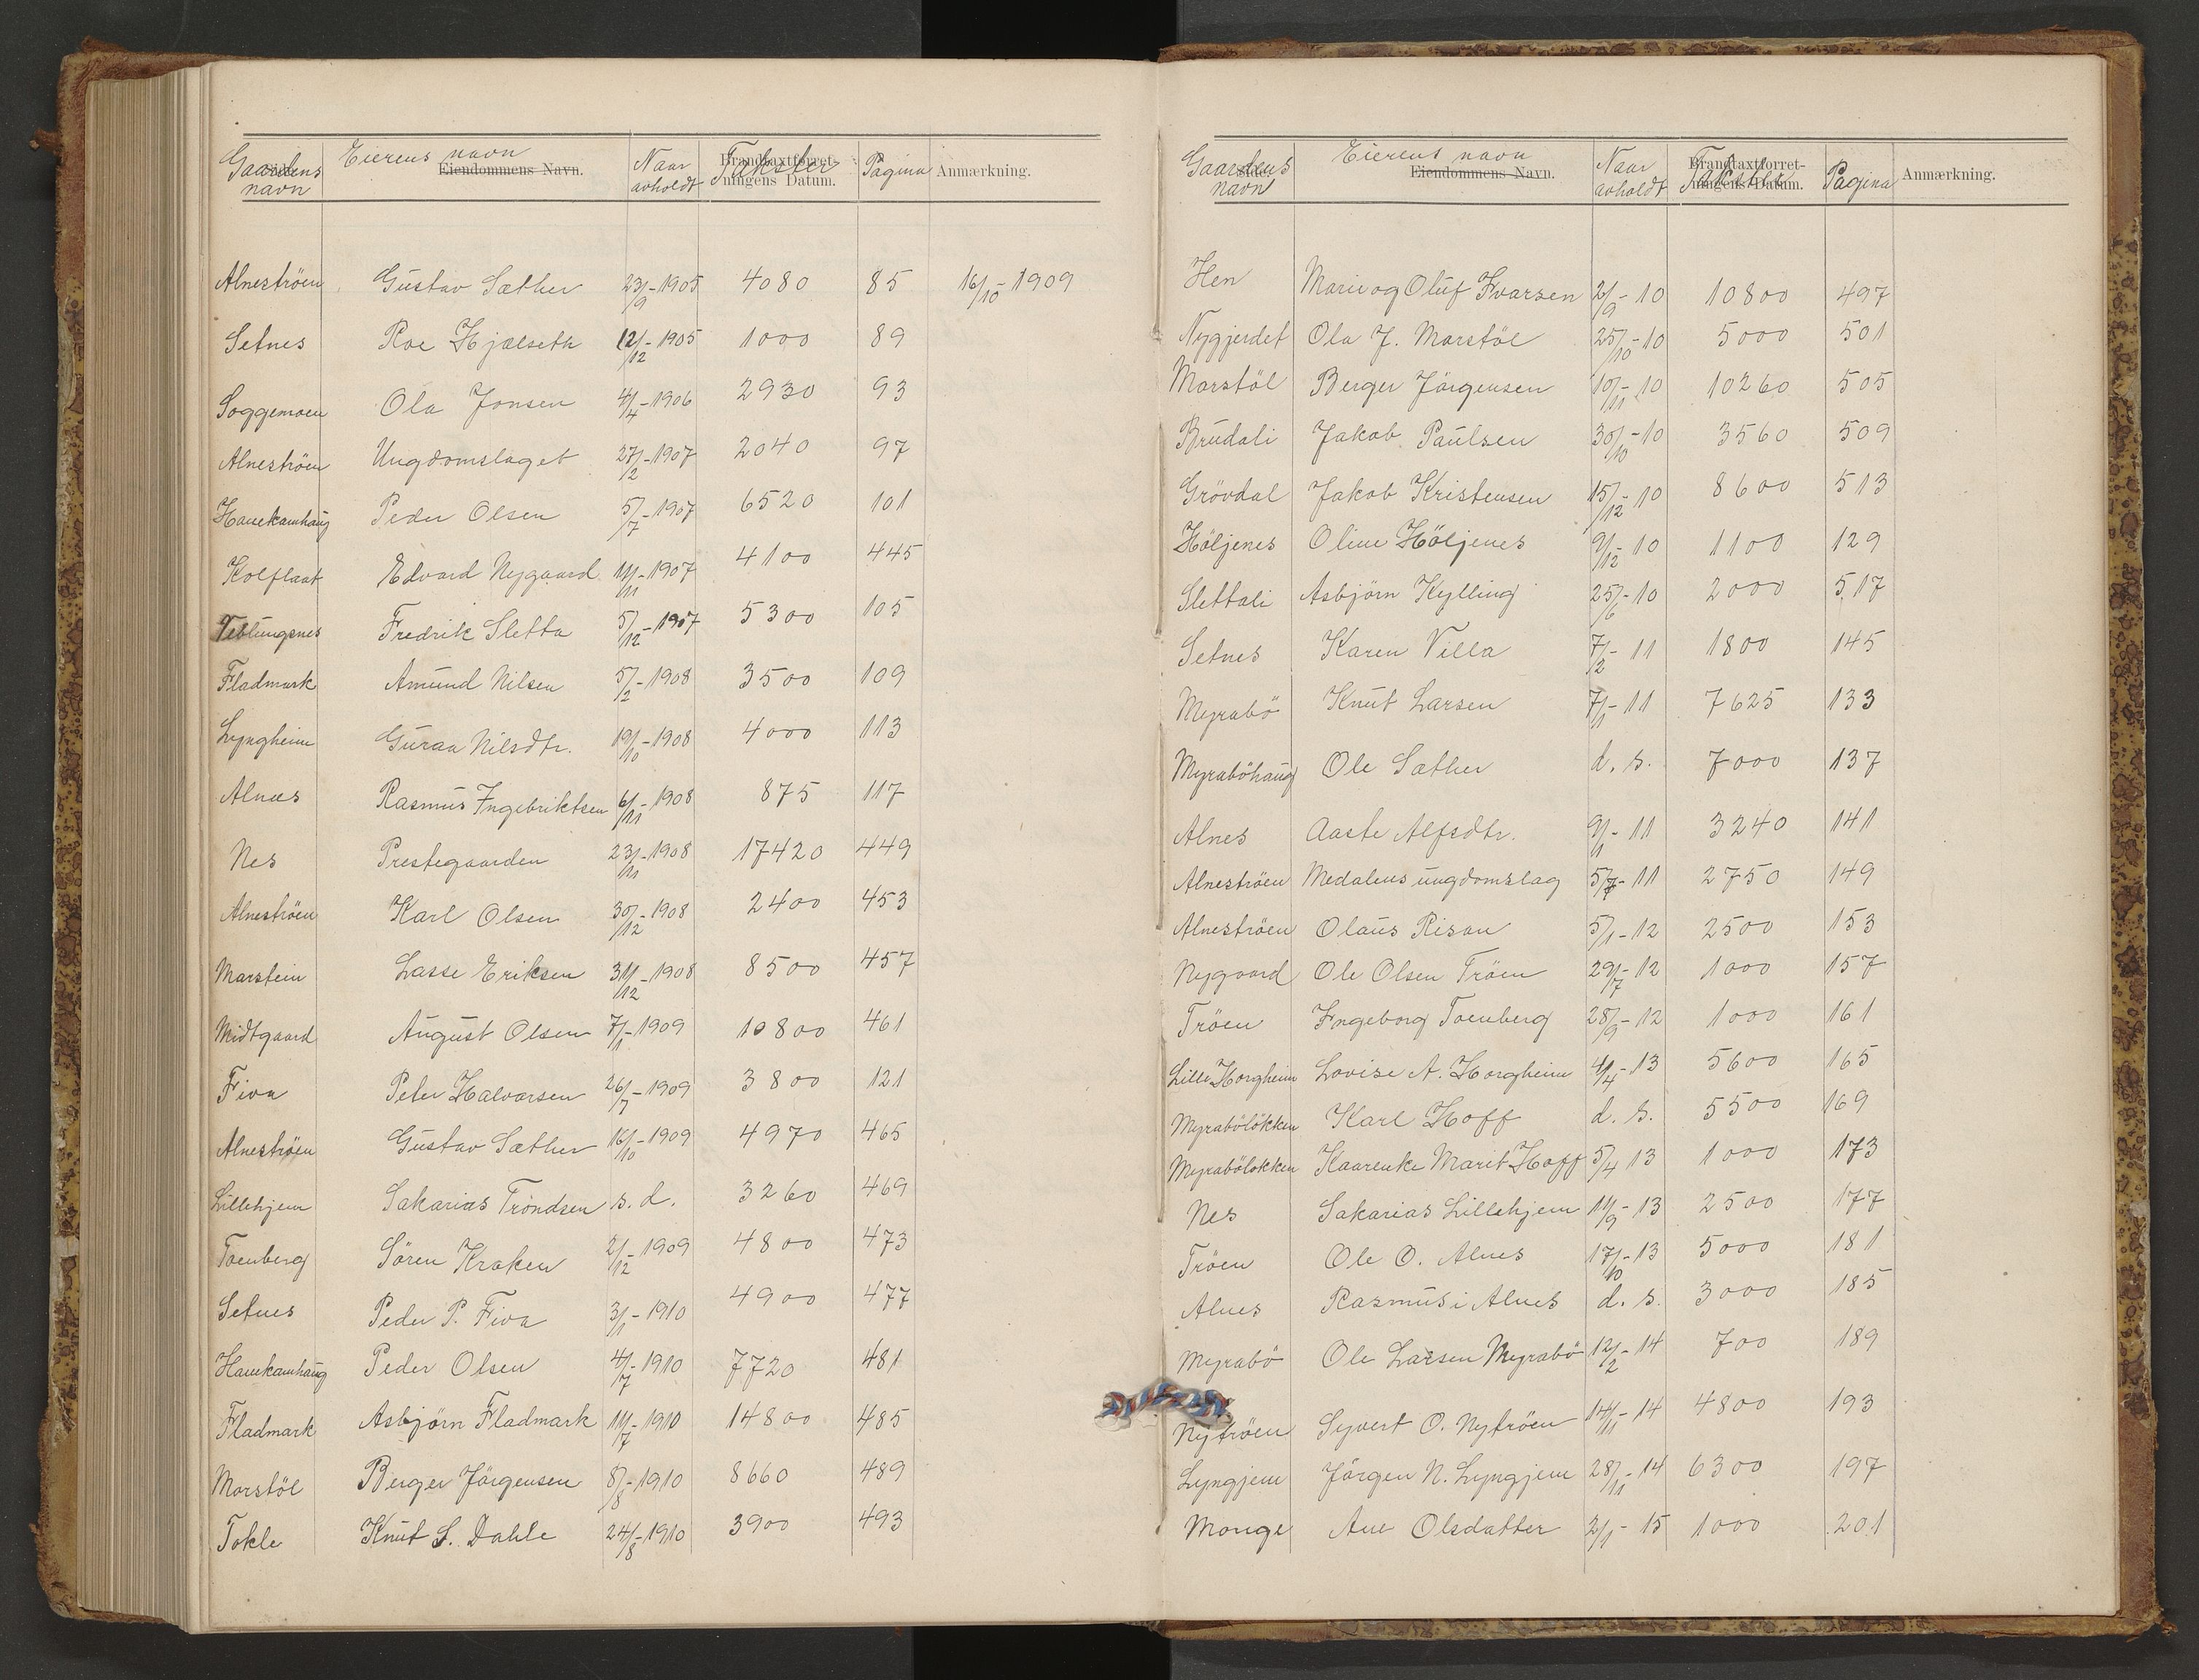 Gaardens navn Eierens navn Eiendommens Navn. Naar avholdt Brandtaxtforretningens Datum. Takster Pagina Anmærkning.
Alneströen Gustav Sæther 23/9-1905 4080 85 16/10 1909
Setnes Roe Hjelseth 12/12-1905 1000 89
Soggemoen Ola Jonsen 4/4-1906 2930 93
Alneströen Ungdomslaget 27/2-1907 2040 97
Hanekamhaug Peder Olsen 5/7-1907 6520 101
Kolflaat Edvard Nygaard 11/11-1907 4100 445
Veblungsnes Fredrik Sletta 5/12-1907 5300 105
Fladmark Amund Nilsen 5/2-1908 3500 109
Lyngheim Guraa Nilsdtr. 19/10-1908 4000 113
Alnæs Rasmus Ingebriktsen 6/11-1908 875 117
Nes Prestegaarden 23/11-1908 17420 449
Alneströen Karl Olsen 30/12-1908 2400 453
Marstein Lasse Eriksen 31/12-1908 8500 457
Midtgaard August Olsen 7/1-1909 10800 461
Fiva Peter Halvorsen 26/7-1909 3800 121
Alneströen Gustav Sæther 16/10-1909 4970 465
Lillehjem Sakarias Tröndsen s. d. 3260 469
Toenberg Sören Kraken 2/12-1909 4800 473
Setnes Peder P. Fiva 3/1-1910 4900 477
Hanekamhaug Peder Olsen 4/7-1910 7720 481
Fladmark Asbjörn Fladmark 11/7-1910 14800 485
Marstöl Berger Jörgensen 8/8-1910 8660 489
Tokle Knut S. Dahle 24/8-1910 3900 493
Gaardens navn Eierens navn Eiendommens Navn. Naar avholdt Brandtaxtforretningens Datum. Takster Pagina Anmærkning.
Hen Marie og Oluf Kvarsen 2/9-10 10800 497
Nygjerdet Ola J. Marstöl 25/10-10 5000 501
Marstöl Berger Jörgensen 10/11-10 10260 505
Brudali Jakob Paulsen 30/10-10 3560 509
Grövdal Jakob Kristensen 15/12-10 8600 513
Höljenes Oline Höljenes 9/12-10 1100 129
Slettali Asbjörn Kylling 25/6-10 2000 517
Setnes Karen Villa 7/2-11 1800 145
Myrabö Knut Larsen 7/1-11 7625 133
Myraböhaug Ole Sæther d. s. 7000 137
Alnes Aaste Alfsdtr. 9/1-11 3240 141
Alneströen Medalens ungdomslag 5/7-11 2750 149
Alneströen Olaus Risan 5/1-12 2500 153
Nygaard Ole Olsen Tröen 29/7-12 1000 157
Tröen Ingeborg Toenberg 28/9-12 1000 161
Lille Horgheim Lovise A. Horgheim 4/4-13 5600 165
Myrabölökken Karl Hoff d. s. 5500 169
Myrabölökken Kaarenke Marit Hoff 5/4 13 1000 173
Nes Sakarias Lillehjem 11/9-13 2500 177
Tröen Ole O. Alnes 17/10-13 5000 181
Alnes Rasmus i Alnes d. s. 3000 185
Myrabö Ole Larsen Myrabö 12/2-14 700 189
Nytröen Syvert O. Nytröen 14/11-14 4800 193
Lyngjem Jörgen N. Lyngjem 28/11-14 6300 197
Monge Ane Olsdatter 2/1-15 1000 201